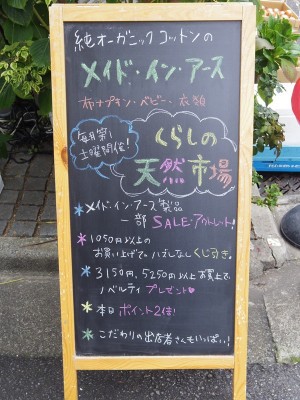 純オーガニックコットンの
メイド・イン・アース
布ナプキン・ベビー・衣類
毎月第1
土曜開催!
くらしの
天然市場
*メイド・イン・アース製品
一部 SALE・アウトレット!
*1050円以上の
お買い上げで ハズレなしくじ引き。
*3150円、5250円以上お買上で、
ノベルティプレゼント♥
*本日 ポイント2倍!
*こだわりの出店者さんもいっぱい!